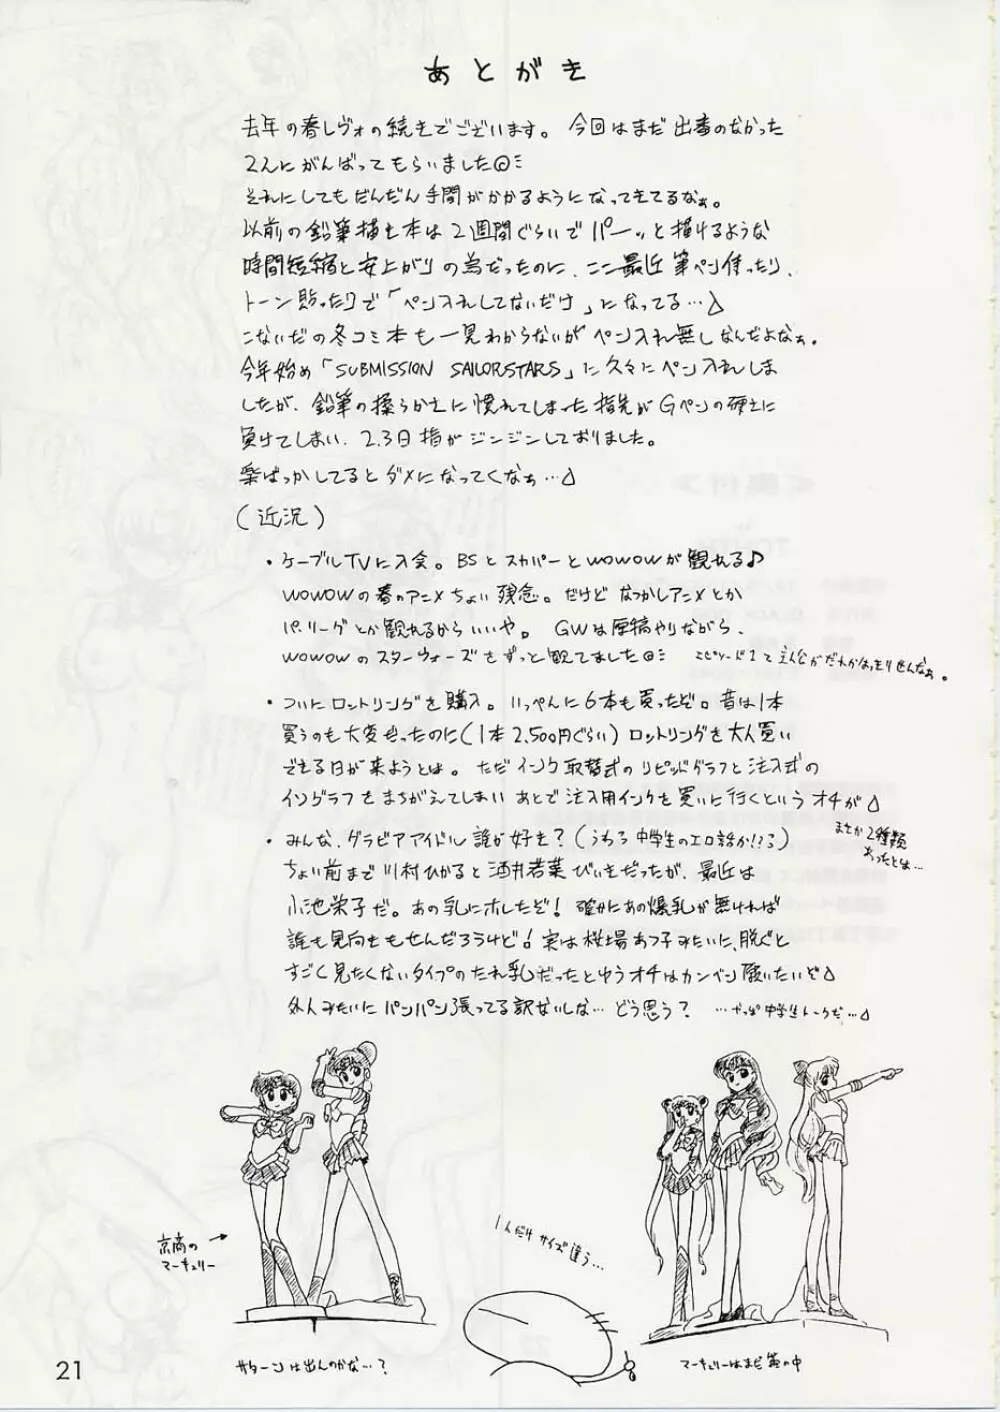 あとがき
去年の春レヴォの続きでございます。今回はまだ出番のなかった
2人にがんばってもらいました@ミ
それにしてもだんだん手間がかかるようになってきてるなぁ。
以前の鉛筆描き本は2週間ぐらいでパーッと描けるような
時間短縮と安上がりの為だったのに、ここ最近筆ペン使ったり、
トーン貼ったりで「ペン入れしてないだけ」になってる…△
こないだの冬コミ本も一見わからないがペン入れ無しなんだよなぁ。
今年始め「SUBMISSION SAILORSTARS」に久々にペン入れしま
したが、鉛筆の柔らかさに慣れてしまった指先がGペンの硬さに
負けてしまい、2.3日指がジンジンしておりました。
楽ばっかしてるとダメになってくなぁ…△
(近況)
・ケーブルTVに入会。BSとスカパーとWOWOWが観れる♪
WOWOWの春のアニメちょい残念。だけどなつかしアニメとか
パ・リーグとか観れるからいいや。GWは原稿やりながら、
WOWOWのスターウォーズをずっと観てました@ミ エピソード1て主人公がだれかはっきりせんなぁ。
・ついにロットリングを購入。いっぺんに6本も買ったぞ。昔は1本
買うのも大変だったのに(1本2,500円ぐらい)ロットリングを大人買い
できる日が来ようとは。ただインク取替式のラピッドグラフと注入式の
イソグラフをまちがえてしまいあとで注入用インクを買いに行くというオチが△
まさか2種類
あったとは…
・みんな、グラビアアイドル誰が好き?(うわっ中学生のエロ話か!?る)
ちょい前まで川村ひかると酒井若菜びいきだったが、最近は
小池栄子だ。あの乳にホレたぞ!確かにあの爆乳が無ければ
誰も見向きもせんだろうけど!実は桜場あつ子みたいに、脱ぐと
すごく見たくないタイプのたれ乳だったとゆうオチはカンベン願いたいぞ△
外人みたいにパンパン張ってる訳ないしな…どう思う? …やっぱ中学生トークだ…△
京商の
マーキュリー
1人だけサイズ違う…
サターンは出んのかな…?
マーキュリーはまだ箱の中
21